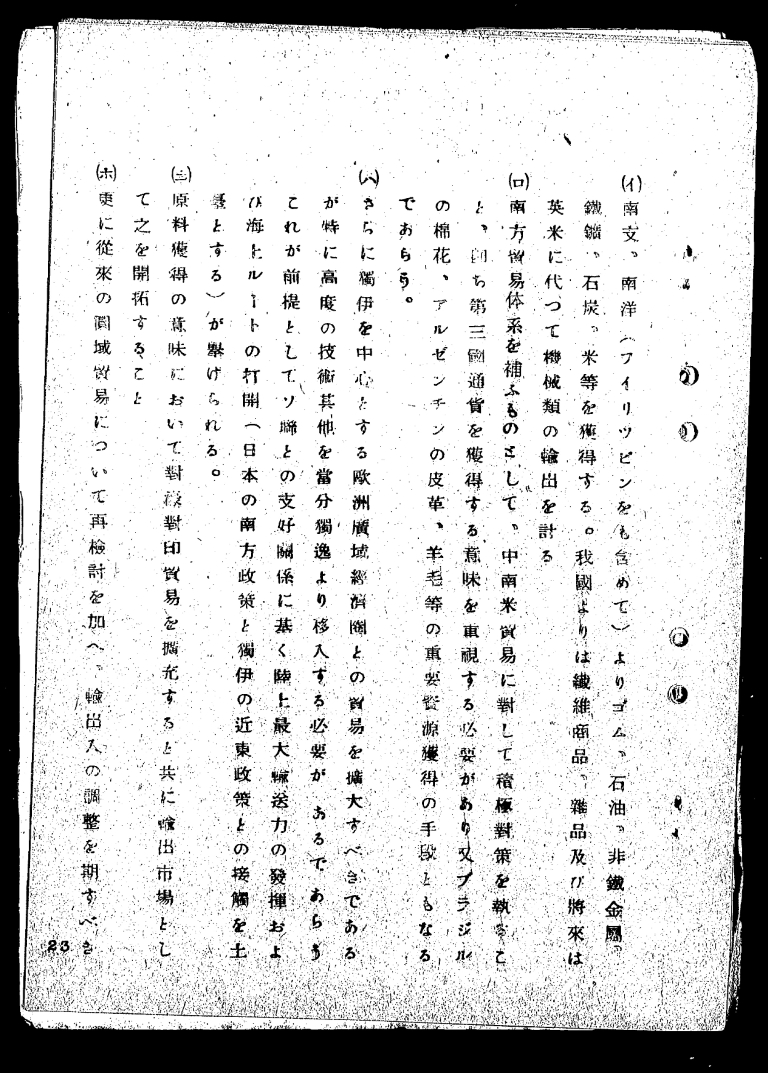 (イ)南支、南洋(フイリツピンをも含めて)よりゴム、石油、非鐵金屬、
鐵鑛、石炭、米等を獲得する。我國よりは纎維商品、雜品及び將來は
英米に代つて機械類の輸出を計る
(ロ)南方貿易体系を補ふものとして、中南米貿易に對して積極對策を執るこ
と、即ち第三國通貨を獲得する意味を重視する必要があり又ブラジル
の棉花、アルゼンチンの皮革、羊毛等の重要資源獲得の手段ともなる
であらう。
(ハ)さらに獨伊を中心とする歐洲廣域經濟圈との貿易を擴大すべきである
が特に高度の技術其他を當分獨逸より移入する必要が あるであらう
これが前提としてソ聯との友好關係に基く陸上最大輸送力の發揮およ
び海上ルートの打開(日本の南方政策と獨伊の近東政策との接觸を土
臺とする)が擧げられる。
(ニ)原料獲得の意味において對 對印貿易を擴充すると共に輸出市場とし
て之を開拓すること
(ホ)更に從來の圓域貿易について再檢討を加へ、輸出入の調整を期すべき
23